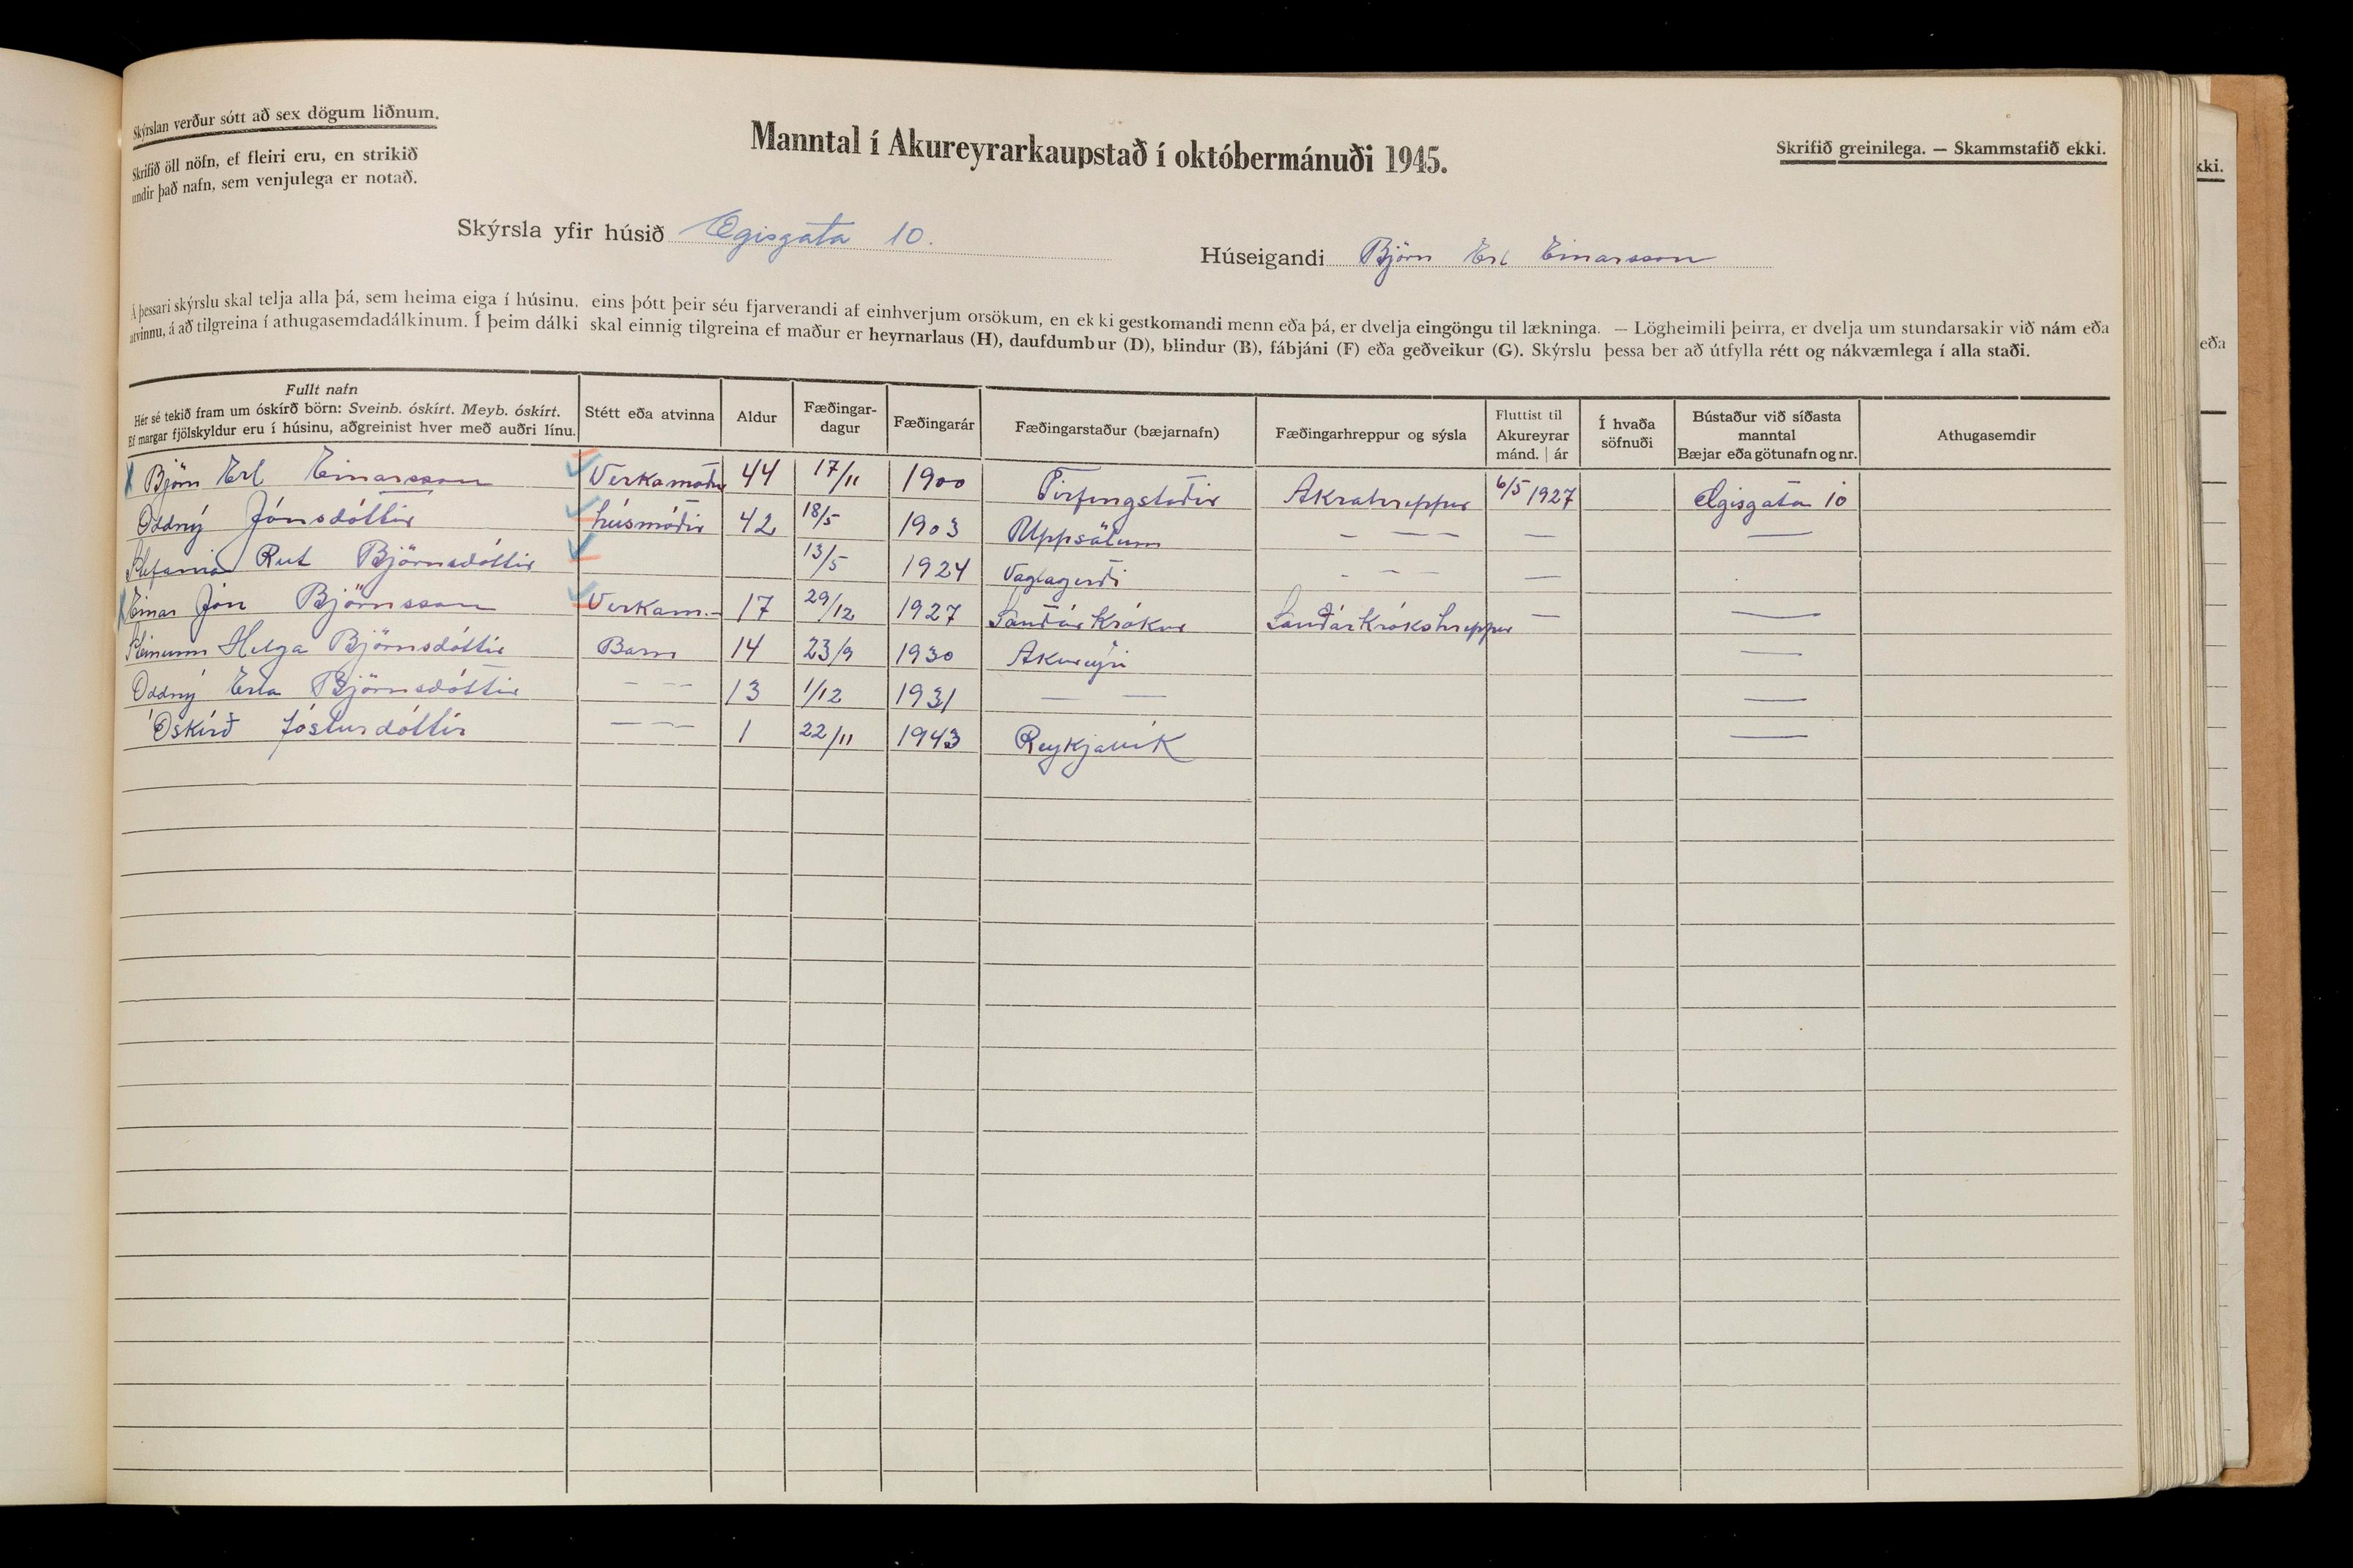 Skýrslan verður sótt að sex dögum liðnum.
Skrifið öll nöfn, ef fleiri eru, en strikið
undir það nafn, sem venjulega er notað.
Manntal í Akureyrarkaupstað í októbermánuði 1945.
Skrifið greinilega. — Skammstafið ekki.
Skýrsla yfir húsið Ægisgata 10.
Húseigandi Björn Erl Einarsson
Á þessari skýrslu skal telja alla þá, sem heima eiga í húsinu, eins þótt þeir séu fjarverandi af einhverjum orsökum, en ekki gestkomandi menn eða þá, er dvelja eingöngu til lækninga. — Lögheimili þeirra, er dvelja um stundarsakir við nám eða
atvinnu, á að tilgreina í athugasemdadálkinum. Í þeim dálki skal einnig tilgreina ef maður er heyrnarlaus (H), daufdumbur (D), blindur (B), fábjáni (F) eða geðveikur (G). Skýrslu þessa ber að útfylla rétt og nákvæmlega í alla staði.
Fullt nafn
Hér sé tekið fram um óskírð börn: Sveinb. óskírt. Meyb. óskírt.
Ef margar fjölskyldur eru í húsinu, aðgreinist hver með auðri línu.
Stétt eða atvinna
Aldur
Fæðingar-
dagur
Fæðingarár
Fæðingarstaður (bæjarnafn)
Fæðingarhreppur og sýsla
Fluttist til
Akureyrar
mánd. | ár
Í hvaða
söfnuði
Bústaður við síðasta
manntal
Bæjar eða götunafn og nr.
Athugasemdir
x Björn Erl Einarsson Verkamaður 44 17/11 1900 Tirfingstaðir Akrahreppur 6/5 1927 Ægisgata 10
Oddný Jónsdóttir húsmóðir 42 18/5 1903 Uppsölum — — — — —
Stefanía Rut Björnsdóttir 13/5 1924 Vaglagerði - - - —
x Einar Jón Björnsson Verkam.- 17 29/12 1927 Sauðárkrókur Sauðárkrókshreppur — —
Steinunn Helga Björnsdóttir Barn 14 23/9 1930 Akureyri —
Oddný Erla Björnsdóttir — — 13 1/12 1931 — — —
Óskírð fósturdóttir — — 1 22/11 1943 Reykjavík —
kki.
eða